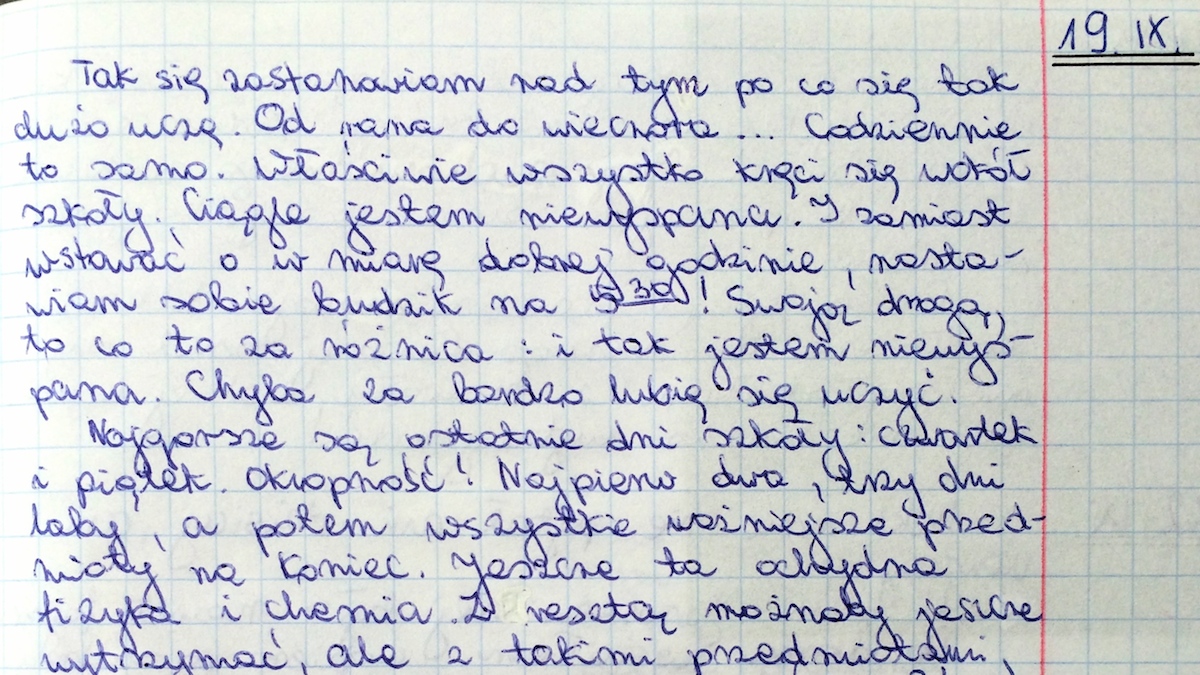 19. IX.
Tak się zastanawiam nad tym po co się tak
dużo uczę. Od rana do wieczora... Codziennie
to samo. Właściwie wszystko kręci się wokół
szkoły. Ciągle jestem niewyspana. I zamiast
wstawać o w miarę dobrej godzinie, nasta-
wiam sobie budzik na 5 30! Swoją drogą,
to co to za różnica: i tak jestem niewys-
pana. Chyba za bardzo lubię się uczyć.
Najgorsze są ostatnie dni szkoły: czwartek
i piątek. Okropność! Najpierw dwa, trzy dni
laby, a potem wszystkie ważniejsze przed-
mioty na koniec. Jeszcze ta ochydna
fizyka i chemia. Z resztą możnaby jeszcze
wytrzymać, ale z takimi przedmiotami,